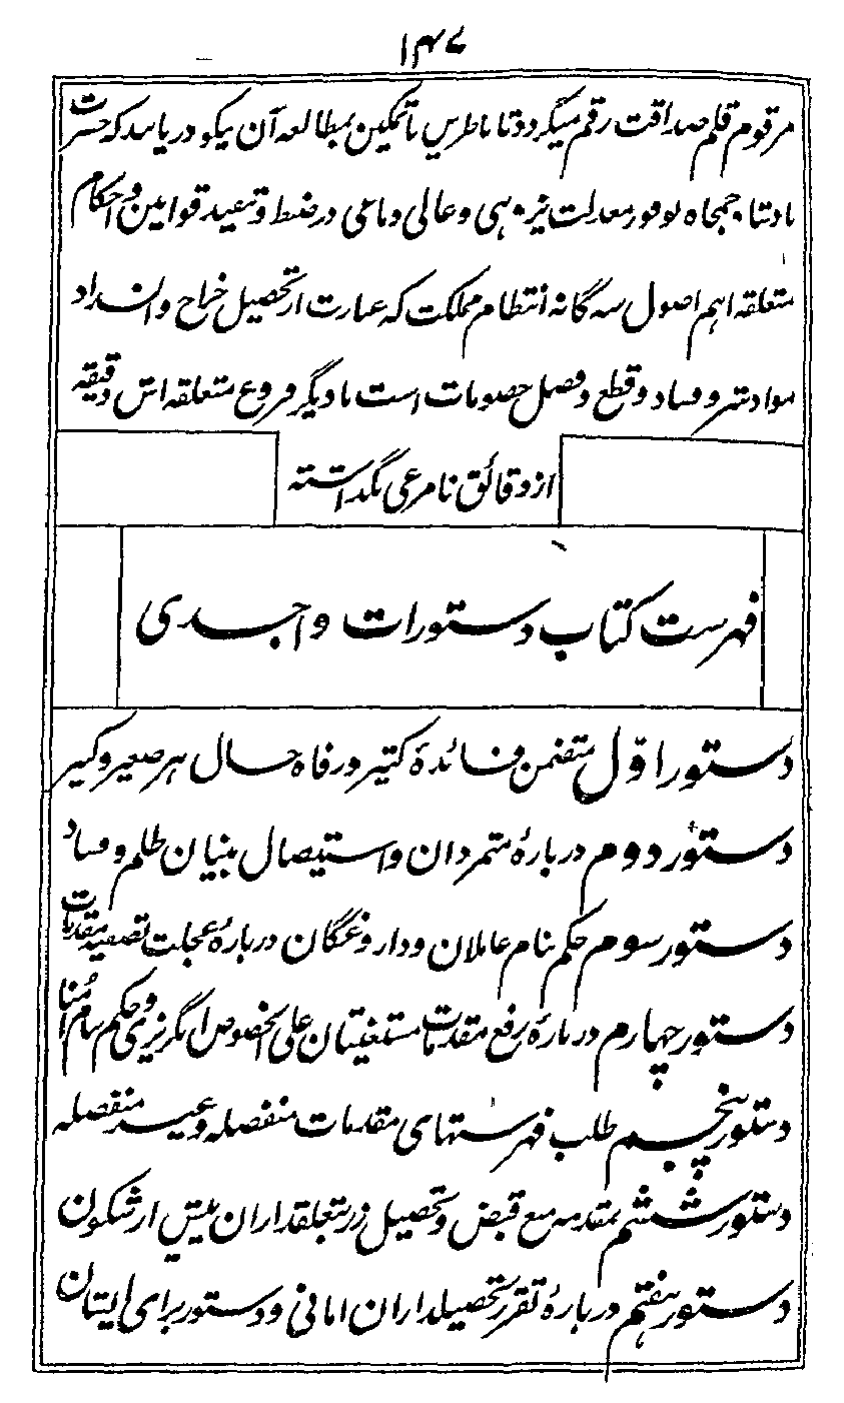 ۱۴۷
مرقوم قلم صداقت رقم میگردد تا ناظرین باتمکین بمطالعه آن نیکو دریابند که حضرت
بادشاه جمجاه بوفور معدلت پژوهی و عالی دماغی در ضبط و تنفیذ قوانین و احکام
متعلقه اهم اصول سه گانه انتظام مملکت که عبارت از تحصیل خراج و انسداد
مواد شر و فساد و قطع و فصل خصومات است با دیگر فروع متعلقه اش دقیقه
از دقائق نامرعی نگذاشته
فهرست کتاب دستورات واجدی
دستور اوّل متضمن فائدهٔ کثیر و رفاه حال هر صغیر و کبیر
دستور دوم دربارهٔ متمردان و استیصال بنیان ظلم و فساد
دستور سوم حکم بنام عاملان و داروغگان دربارهٔ عجلت تصفیه مقدمات
دستور چهارم دربارهٔ رفع مقدمات مستغیثان علی الخصوص انگریزی و حکم بنام اُمنا
دستور پنجم طلب فهرستهای مقدمات منفصله و غیر منفصله
دستور ششم بمقدمه منع قبض و تحصیل زر تعلقداران پیش از شگون
دستور هفتم دربارهٔ تقرر تحصیلداران امانی و دستور برای ایشان